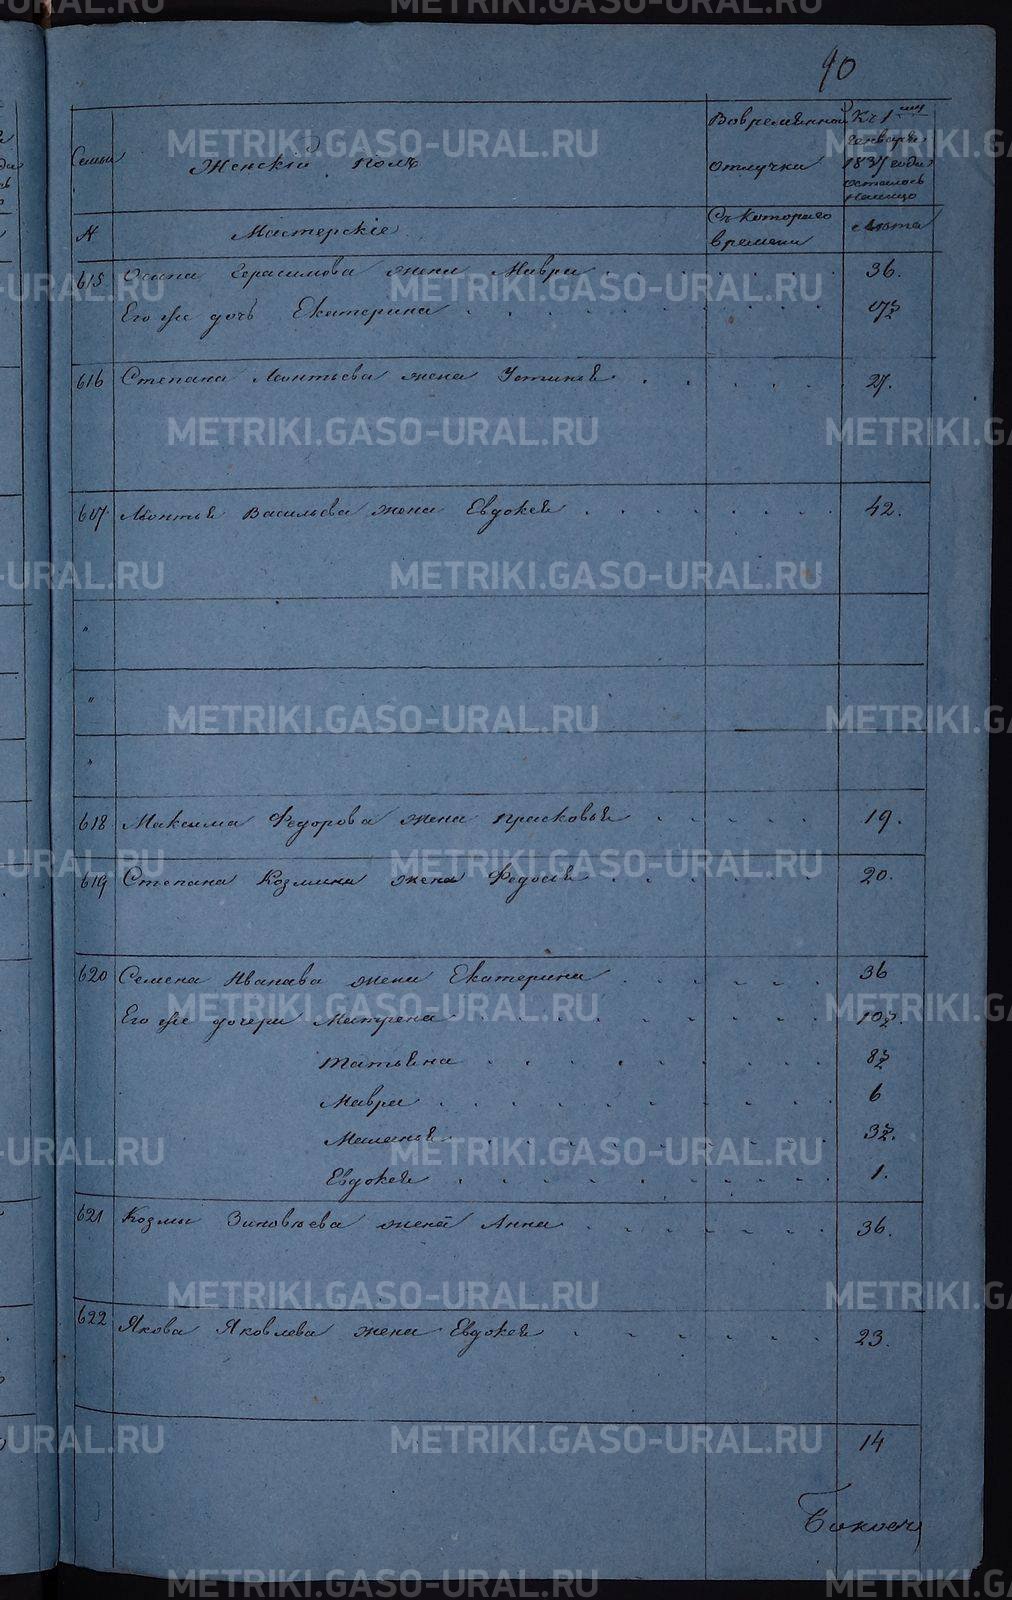 90
Семьи
Женскій полъ
Во временной отлучки
Къ 1му генваря 1837 года осталось налицо
№
Мастерскіе
Съ котораго времени
Лета
615 Осипа Герасимова жена Мавра 36.
Его же дочь Екатерина
616 Степана Леонтьева жена Устинья 27.
617 Леонтья Васильева жена Евдокея 42.
"
"
"
618 Максима Федорова жена Прасковья 19.
619 Степана Козмина жена Федосья 20.
620 Семена Иванава жена Екатерина 36
Его же дочери Матрена 10½.
Татьяна 8½
Мавра 6
Маланья 3½.
Евдокея 1.
621 Козмы Зиновьева жена Анна 36.
622 Якова Яковлева жена Евдокея 23.
14
METRIKI.GASO-URAL.RU